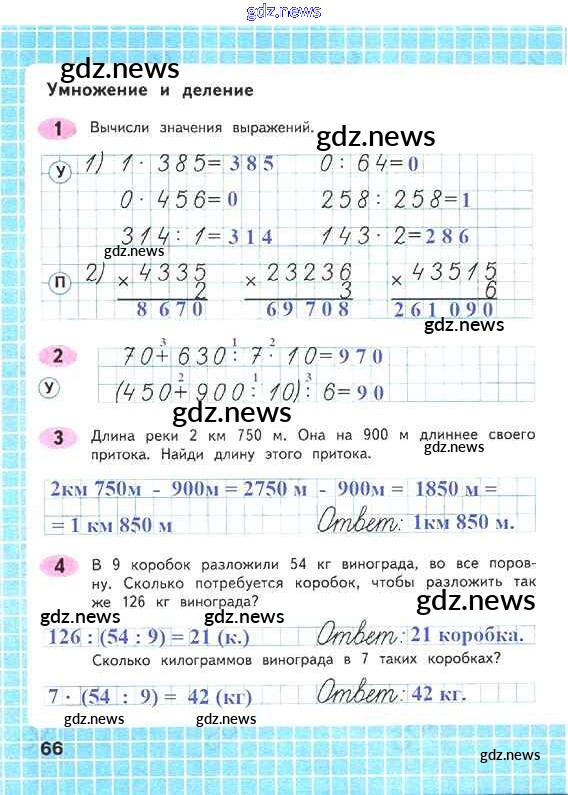 gdz.news
gdz.news
Умножение и деление
1 Вычисли значения выражений.
gdz.news
У 1) 1 · 385 = 385 0 : 64 = 0
0 · 456 = 0 258 : 258 = 1
314 : 1 = 314 143 · 2 = 286
gdz.news
П 2) × 4335 × 23236 × 43515
2 3 6
8670 69708 261090
gdz.news
3 1 2
2 70 + 630 : 7 · 10 = 970
2 1 3
У (450 + 900 : 10) : 6 = 90
gdz.news
3 Длина реки 2 км 750 м. Она на 900 м длиннее своего
притока. Найди длину этого притока.
gdz.news
2км 750м - 900м = 2750 м - 900м = 1850 м =
= 1 км 850 м Ответ: 1км 850 м.
4 В 9 коробок разложили 54 кг винограда, во все поров-
ну. Сколько потребуется коробок, чтобы разложить так
же 126 кг винограда?
gdz.news
gdz.news
126 : (54 : 9) = 21 (к.) Ответ: 21 коробка.
Сколько килограммов винограда в 7 таких коробках?
7 · (54 : 9) = 42 (кг) Ответ: 42 кг.
gdz.news
gdz.news
66
gdz.news